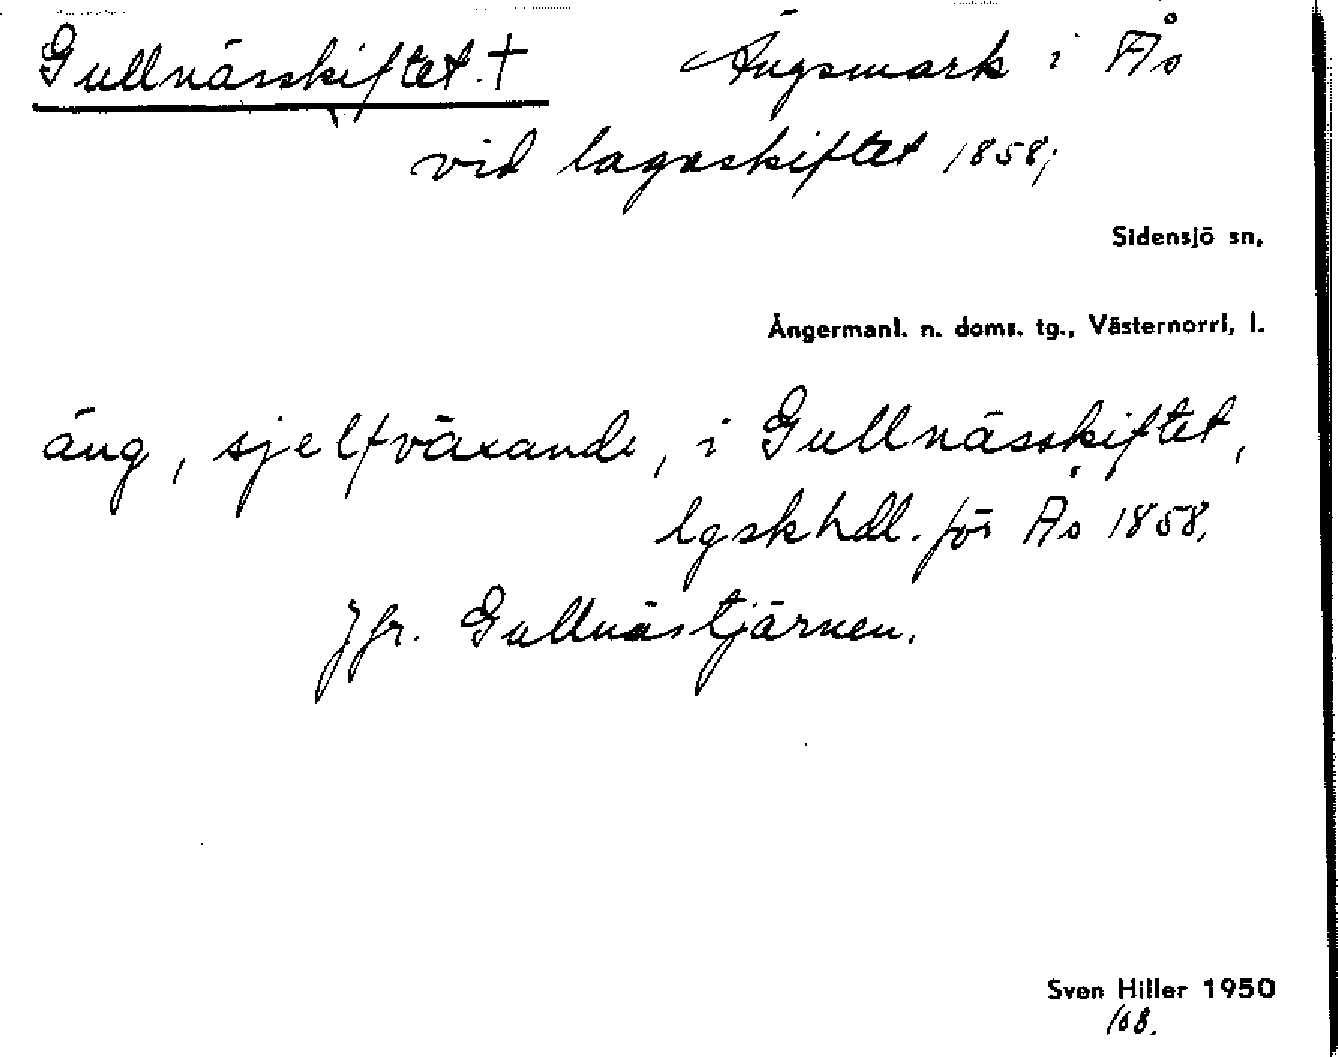 Gullnässkiftet. † Ängsmark i Ås
vid lagaskiftet 1858;
Sidensjö sn,
Ångermanl. n. doms. tg., Västernorrl, l.
äng, sjelfväxande, i Gullnässkiftet,
lgskhdl. för Ås 1858.
Jfr. Gullnästjärnen.
Sven Hiller 1950
168.